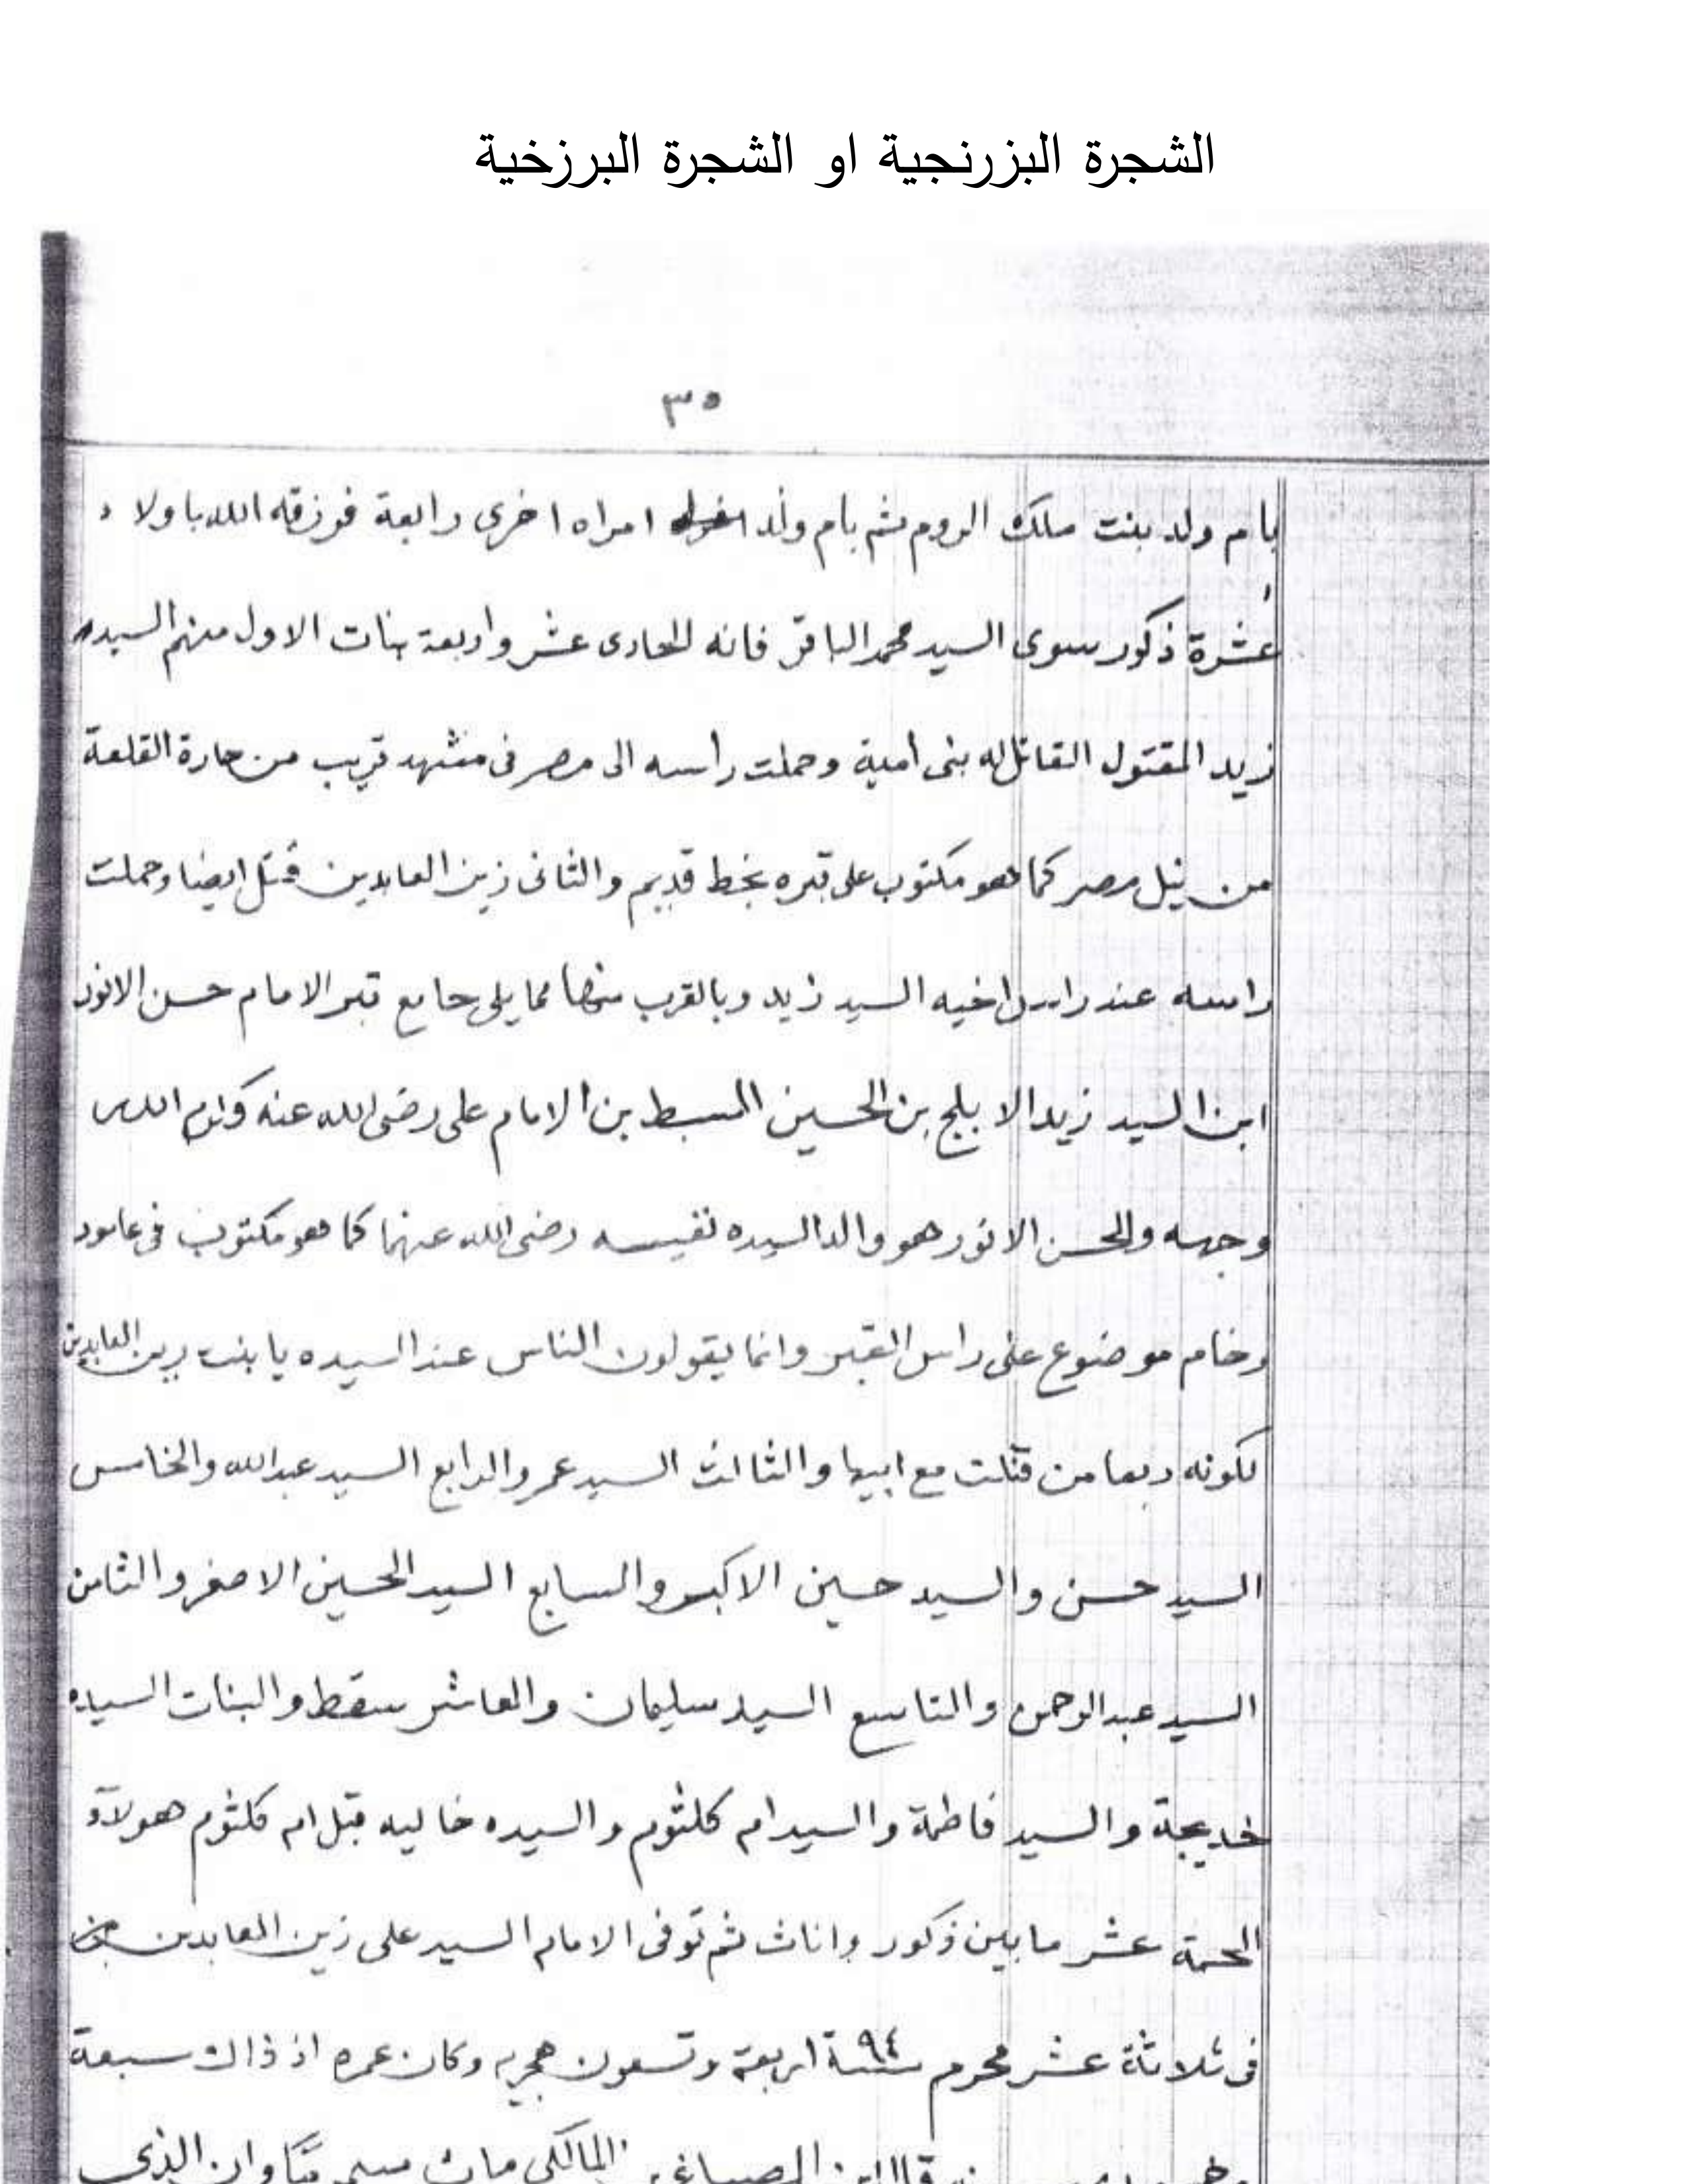 الشجرة البزرنجية او الشجرة البرزخية
٣٥
بام ولد بنت ملك الروم ثم بام ولد امراه اخرى رابعة فرزقه الله باولاد
عشرة ذكور سوى السيد محمد الباقر فانه الحادى عشر واربعة بنات الاول منهم السيد
زيد المقتول القاتل له بنى امية وحملت راسه الى مصر فى مشهد قريب من حارة القلعة
من نيل مصر كما هو مكتوب على قبره بخط قديم والثانى زين العابدين قتل ايضا وحملت
راسه عند راس اخيه السيد زيد وبالقرب منها مما يلى جامع قبر الامام حسن الانور
ابن السيد زيد الابلج بن الحسين السبط بن الامام على رضى الله عنه وكرم الله
وجهه والحسن الانور هو والد السيده نفيسه رضى الله عنها كما هو مكتوب فى عامود
رخام موضوع على راس القبر وانما يقولون الناس عند السيده يا بنت زين العابدين
لكونه ربما من قتلت مع ابيها والثالث السيد عمر والرابع السيد عبدالله والخامس
السيد حسن والسيد حسين الاكبر والسابع السيد الحسين الاصغر والثامن
السيد عبد الرحمن والتاسع السيد سليمان والعاشر سقط والبنات السيده
خديجة والسيد فاطمة والسيد ام كلثوم والسيده خاليه قبل ام كلثوم هولآو
الخمسة عشر ما بين ذكور واناث ثم توفى الامام السيد على زين العابدين
فى ثلاثة عشر محرم سنة ٩٤ اربعة وتسعون هجريه وكان عمره اذ ذاك سبعة
قال ابن الصباغ المالكى مات وان الذى